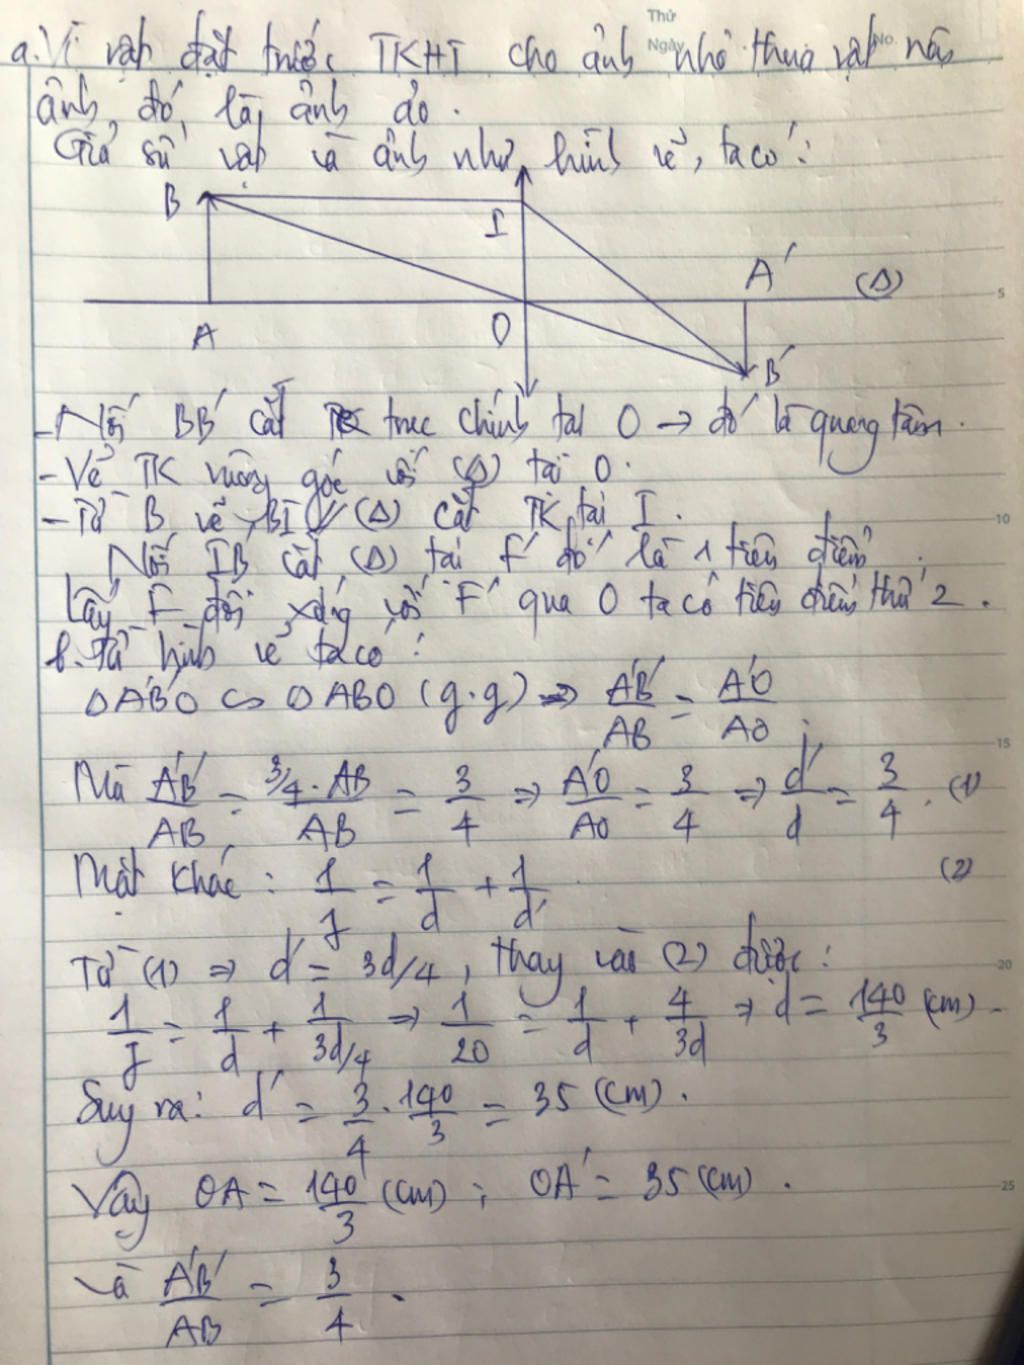 Thứ
Ngày No.
a. Vì vật đặt trước TKHT cho ảnh nhỏ thua vật nên
ảnh đó là ảnh ảo.
Giả sử vật và ảnh như hình vẽ, ta có:
B I A' (Δ)
5
A O B'
- Nối BB' cắt trục chính tại O → đó là quang tâm.
- Vẽ TK vuông góc với (Δ) tại O.
- Từ B vẽ BI // (Δ) cắt TK tại I.
10
Nối IB' cắt (Δ) tại F' đó là 1 tiêu điểm.
Lấy F đối xứng với F' qua O ta có tiêu điểm thứ 2.
b. Từ hình vẽ ta có:
ΔA'B'O ∽ ΔABO (g.g) => A'B'/AB = A'O/AO
15
Mà A'B'/AB = 3/4.AB/AB = 3/4 => A'O/AO = 3/4 => d'/d = 3/4. (1)
Mặt khác: 1/f = 1/d + 1/d' (2)
Từ (1) => d' = 3d/4, thay vào (2) được:
20
1/f = 1/d + 1/3d/4 => 1/20 = 1/d + 4/3d => d = 140/3 (cm).
Suy ra: d' = 3/4 . 140/3 = 35 (cm).
Vậy OA = 140/3 (cm); OA' = 35 (cm).
25
và A'B'/AB = 3/4.